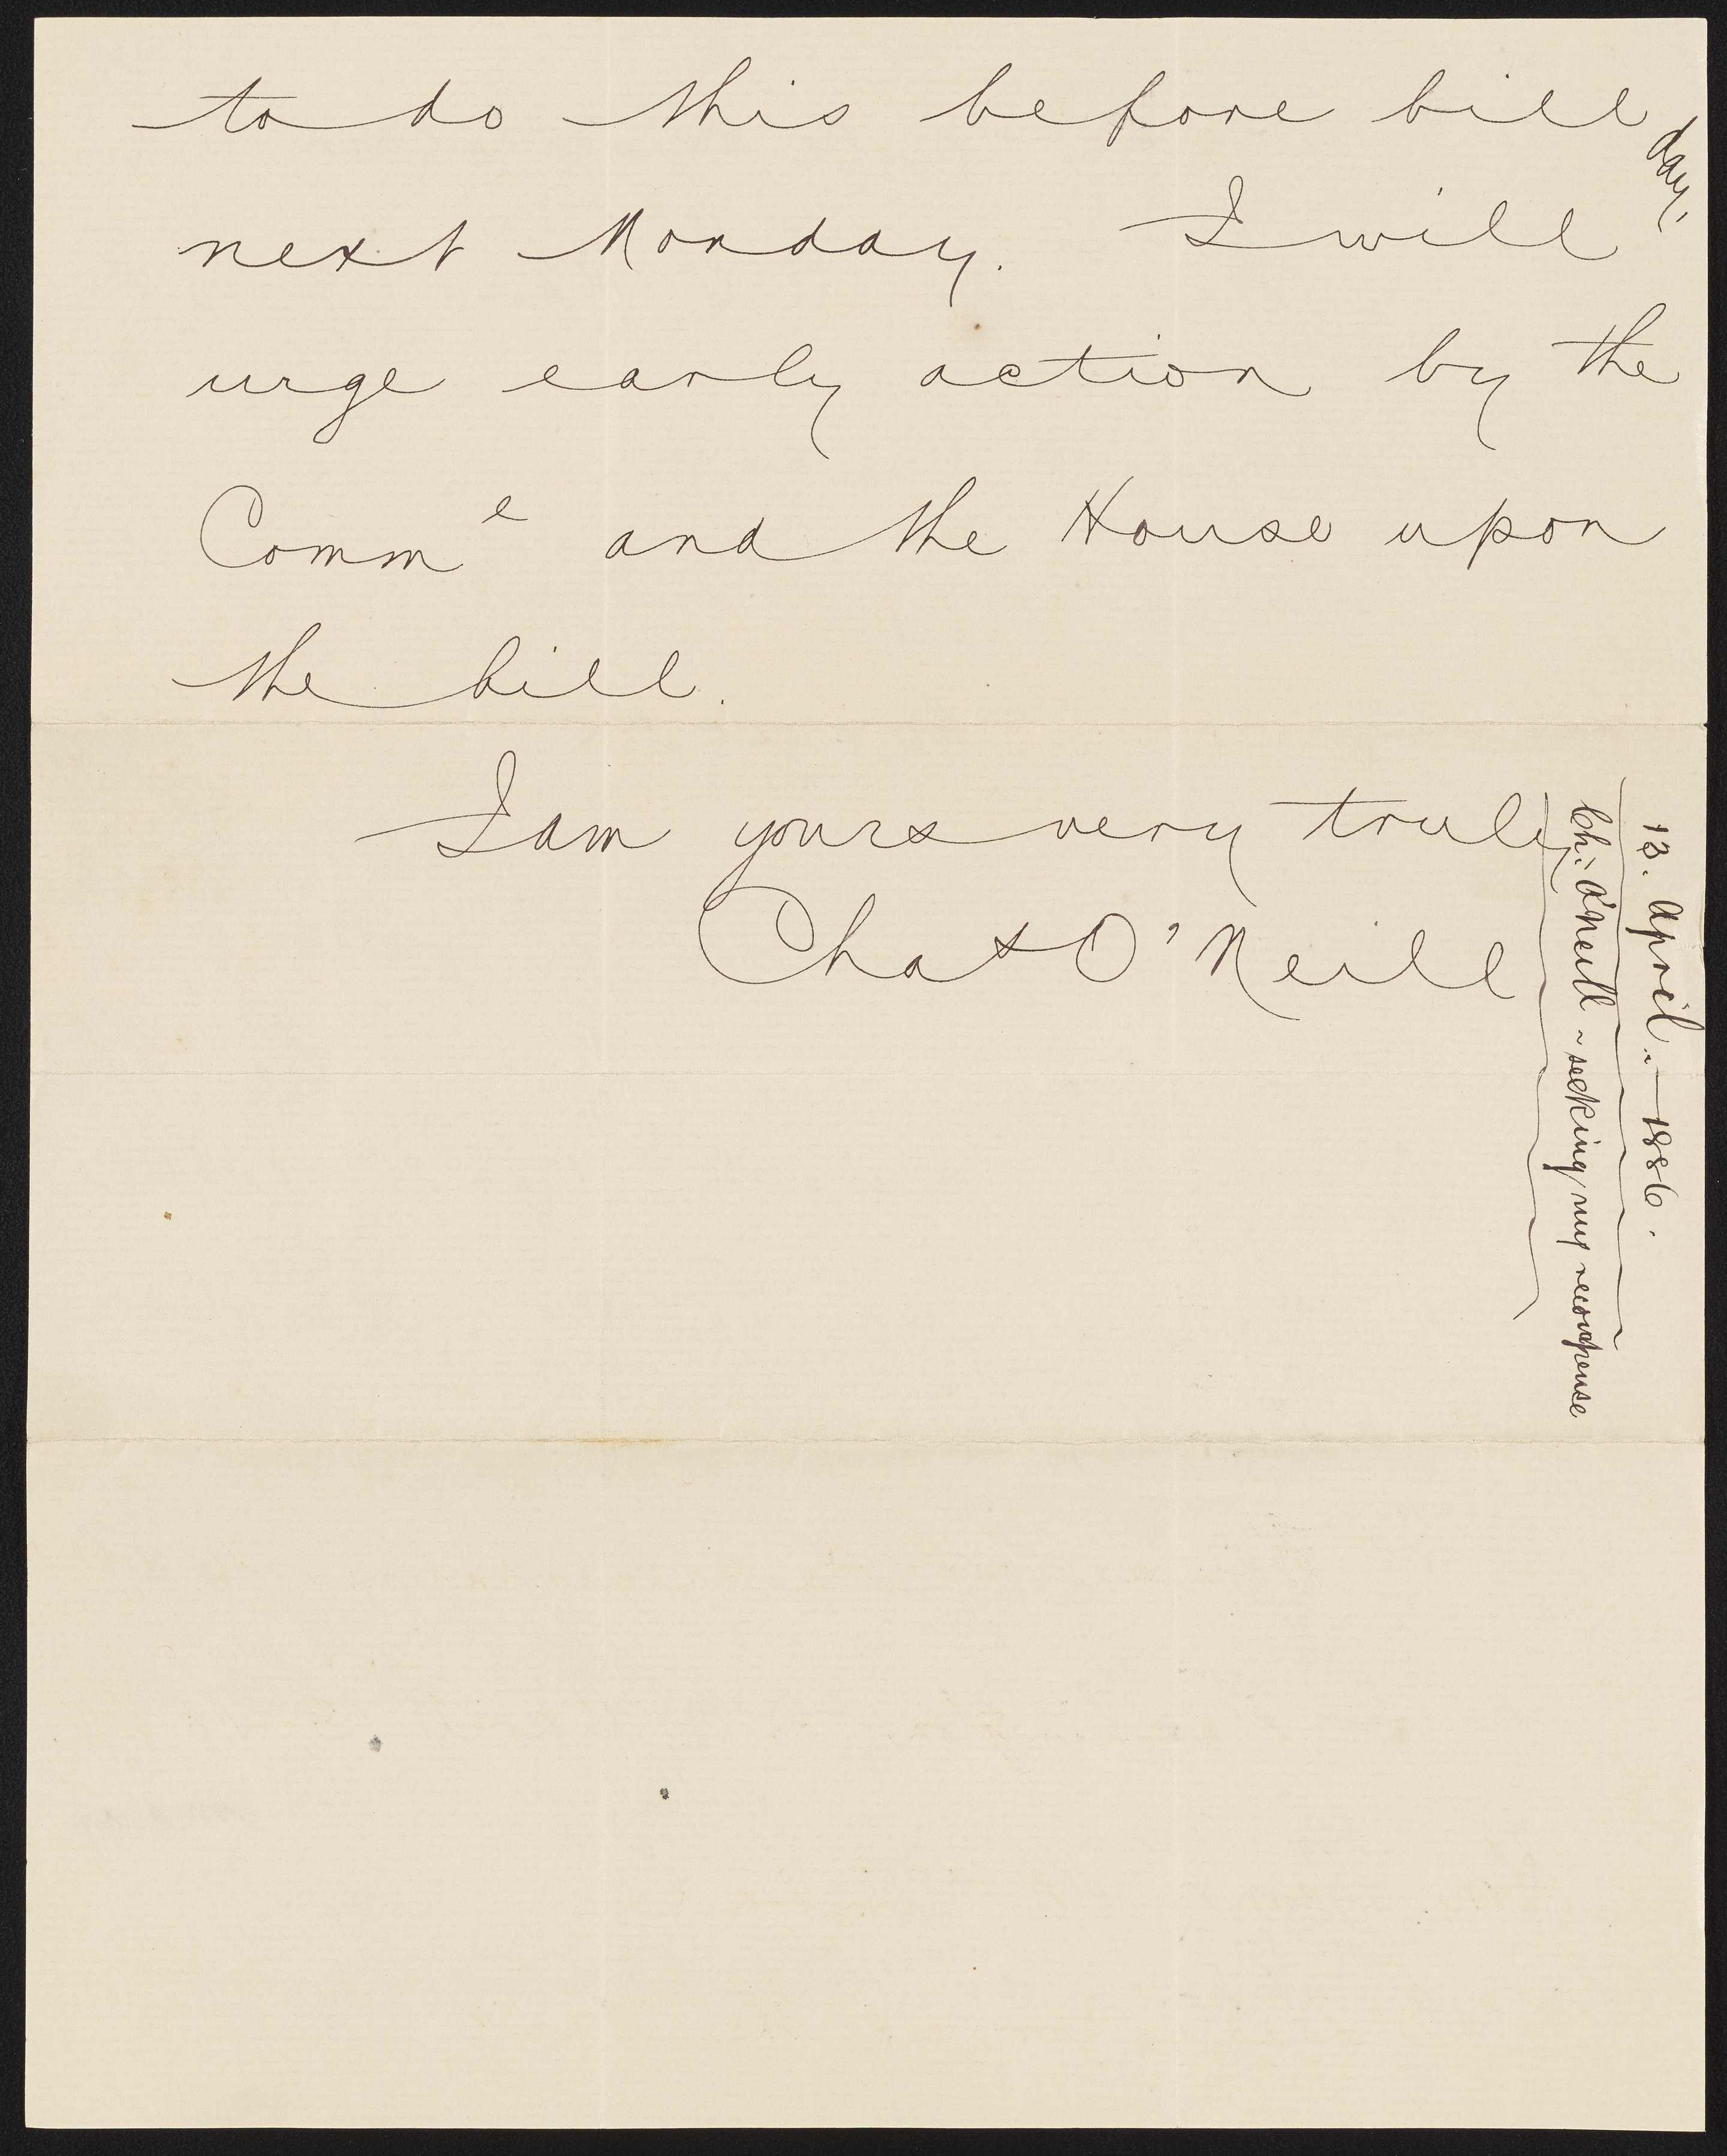 to do this before bill day,
next Monday. I will
urge early action by the
Comm^e and the House upon
the bill.
I am yours very truly
Chas O'Neill
13. April. — 1886.
Ch: O'Neill ~ seeking my recompense